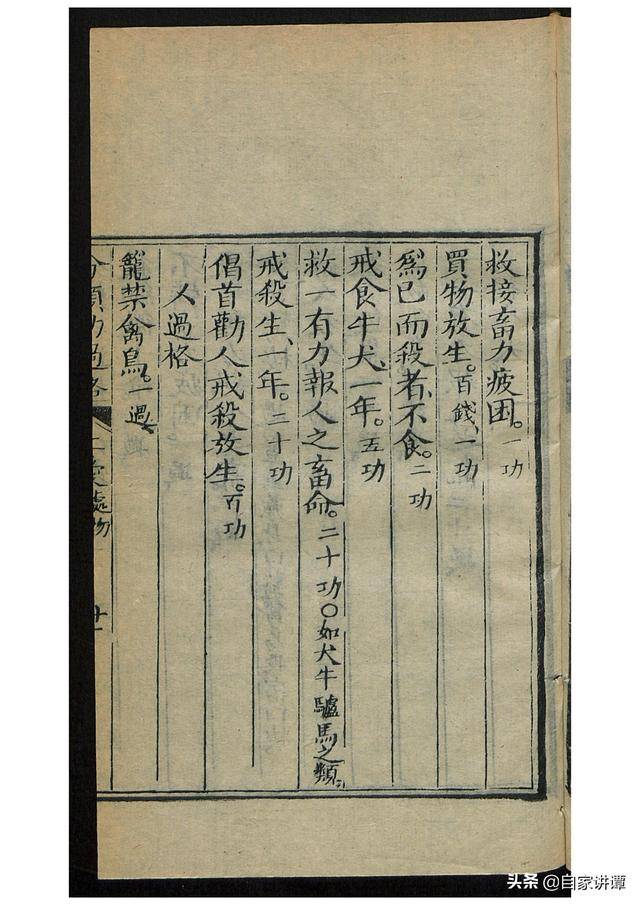 救接畜力疲困。一功
買物放生。百錢、一功
爲己而殺者、不食。二功
戒食牛犬、一年。五功
救一有力報人之畜命。二十功〇如犬牛驢馬之類。
戒殺生、一年。二十功
倡首勸人戒殺放生。百功
人過格
籠禁禽鳥。一過
頭条 @自家讲谭